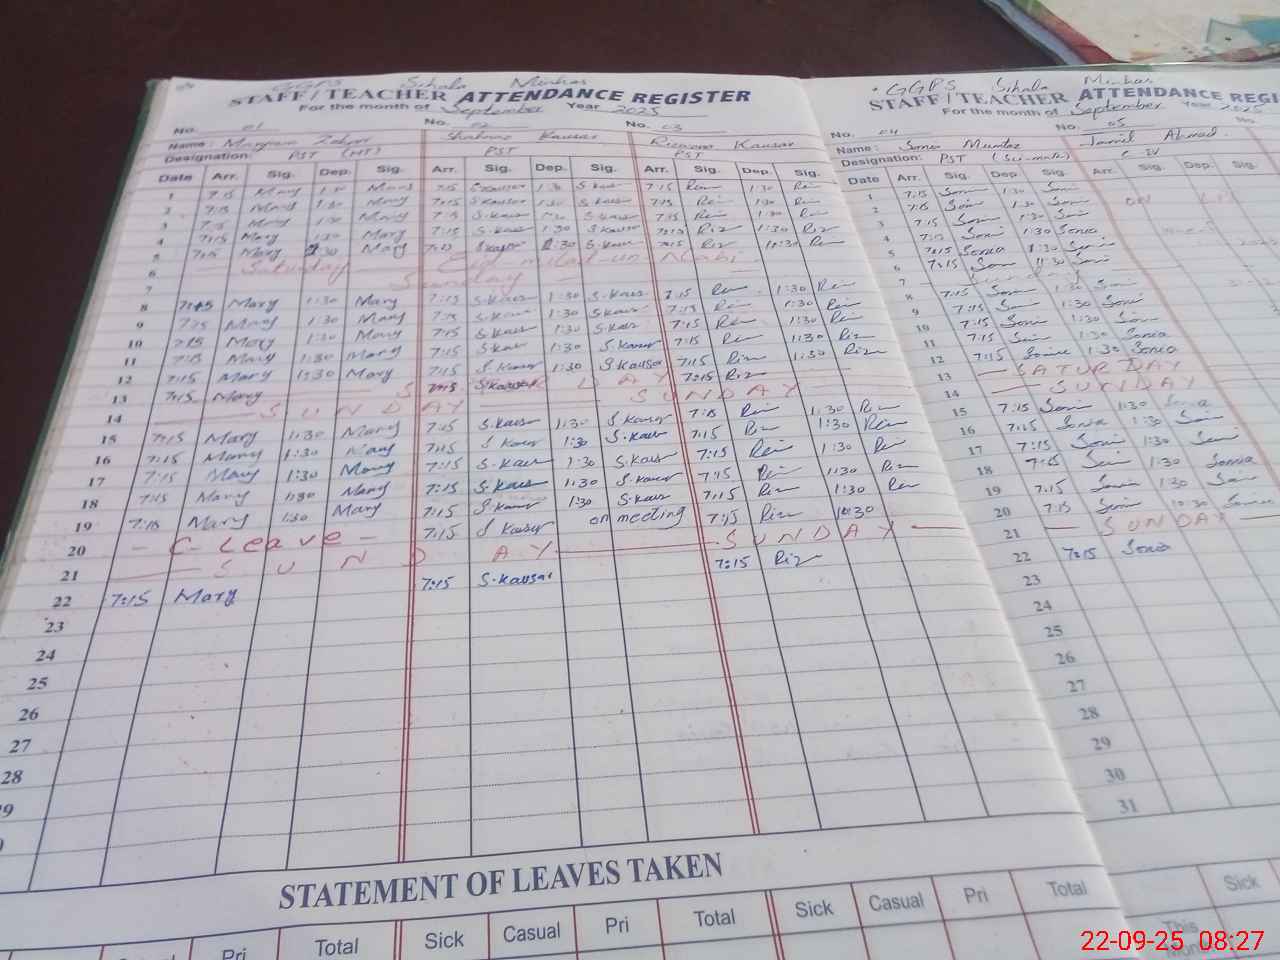 GGPS Sihala Minhas
STAFF / TEACHER ATTENDANCE REGISTER
For the month of September Year 2025
No. 01 No. 02 No. 03
Name: Maryam Shahnaz Kausar Kausar
Designation: PST (HT) PST PST
Date Arr. Sig. Dep. Sig. Arr. Sig. Dep. Sig. Arr. Sig. Dep. Sig.
1 7:15 Mary 1:30 Mary 7:15 S.kausar 1:30 S.kaus 7:15 Riz 1:30
2 7:15 Mary 1:30 Mary 7:15 S.kausar 1:30 S.kaus 7:15 1:30
3 7:15 Mary 1:30 Mary 7:15 S.kaus 1:30 S.kaus 7:15 1:30
4 7:15 Mary 1:30 Mary 7:15 S.kaus 1:30 S.kausar 7:15 Riz 1:30 Riz
5 7:15 Mary 1:30 Mary 7:15 S.kausar 1:30 S.kaus 7:15 Riz
6 Saturday Eid milad-un Nabi
7 Sunday
8 7:15 Mary 1:30 Mary 7:15 S.kaus 1:30 S.kaus 7:15 1:30
9 7:15 Mary 1:30 Mary 7:15 S.kaus 1:30 S.kaus 7:15 1:30
10 7:15 Mary 1:30 Mary 7:15 S.kaus 1:30 S.kaus 7:15 1:30
11 7:15 Mary 1:30 Mary 7:15 S.kaus 1:30 S.kausar 7:15 1:30
12 7:15 Mary 1:30 Mary 7:15 S.kausar 1:30 S.kausar 7:15 Riz 1:30 Riz
13 7:15 Mary 7:15 S.kausar 7:15 Riz
14 SUNDAY SUNDAY
15 7:15 Mary 1:30 Mary 7:15 S.kaus 1:30 S.kausar 7:15 1:30
16 7:15 Mary 1:30 Mary 7:15 S.kaus 1:30 S.kaus 7:15 1:30
17 7:15 Mary 1:30 Mary 7:15 S.kaus 1:30 S.kaus 7:15 1:30
18 7:15 Mary 1:30 Mary 7:15 S.kaus 1:30 S.kausar 7:15 1:30
19 7:15 Mary 1:30 Mary 7:15 S.kausar 1:30 S.kaus 7:15 Riz 1:30
20 - C-Leave - 7:15 S.kausar on meeting 7:15 Riz 10:30
21 SUNDAY SUNDAY
22 7:15 Mary 7:15 S.kausar 7:15 Riz
23
24
25
26
27
28
STATEMENT OF LEAVES TAKEN
Pri Total Sick Casual Pri Total Sick Casual Pri Total
GGPS Sihala Minhas
STAFF / TEACHER ATTENDANCE REGI
For the month of September Year 2025
No. 04 No. 05 No.
Name: Sonia Mumtaz Jamil Ahmad
Designation: PST (Sci-math) C-IV
Date Arr. Sig. Dep. Sig. Arr. Sig. Dep. Sig.
1 7:15 Sonia 1:30 Sonia
2 7:15 Sonia 1:30 Sonia
3 7:15 Sonia 1:30 Sonia
4 7:15 Sonia 1:30 Sonia
5 7:15 Sonia Sonia
6
7 Sunday
8 7:15 Sonia 1:30 Sonia
9 7:15 Sonia 1:30 Sonia
10 7:15 Sonia 1:30 Sonia
11 7:15 Sonia 1:30 Sonia
12 7:15 Sonia 1:30 Sonia
13 SATURDAY
14 SUNDAY
15 7:15 Sonia 1:30 Sonia
16 7:15 Sonia 1:30 Sonia
17 7:15 Sonia 1:30 Sonia
18 7:15 Sonia 1:30 Sonia
19 7:15 Sonia 1:30 Sonia
20 7:15 Sonia 10:30 Sonia
21 SUNDAY
22 7:15 Sonia
23
24
25
26
27
28
29
30
31
Sick
This
22-09-25 08:27